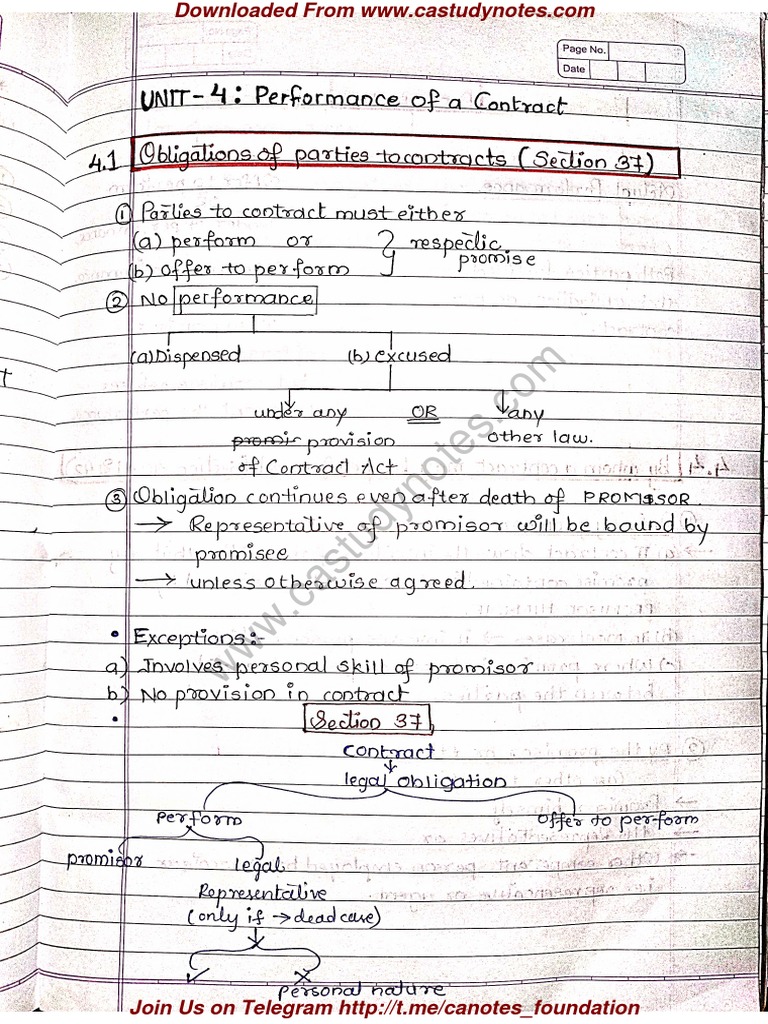 Downloaded From www.castudynotes.com
Page No.
Date
UNIT-4: Performance of a Contract
4.1 Obligations of parties to contracts (Section 37)
① Parties to contract must either
(a) perform or } respectic
(b) offer to perform } promise
② No performance
(a) Dispensed (b) excused
under any OR any
promi- provision other law.
of Contract Act.
③ Obligation continues even after death of PROMISOR.
→ Representative of promisor will be bound by
promisee
→ unless otherwise agreed.
• Exceptions:-
a) Involves personal skill of promisor
b) No provision in contract
• Section 37
Contract
legal obligation
perform offer to perform
promisor legal
Representative
(only if → dead case)
✓ ×
personal nature
www.castudynotes.com
Join Us on Telegram http://t.me/canotes_foundation